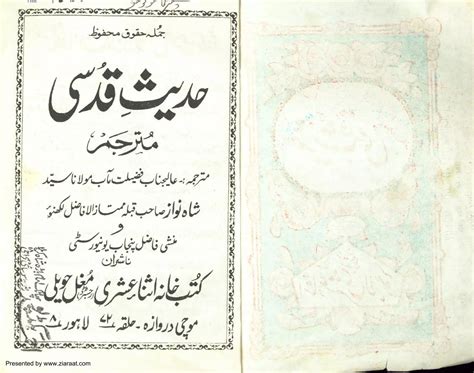 جملہ حقوق محفوظ
حدیثِ قدسی
مترجم
مترجمہ:۔ عالیجناب فضیلت مآب مولانا سید
شاہ نواز صاحب قبلہ ممتاز الافاضل لکھنؤ
و
منشی فاضل پنجاب یونیورسٹی
ناشران
کتب خانہ اثنا عشری مغل حویلی
موچی دروازہ۔ حلقہ ۷۲ لاہور ۸
Presented by www.ziaraat.com